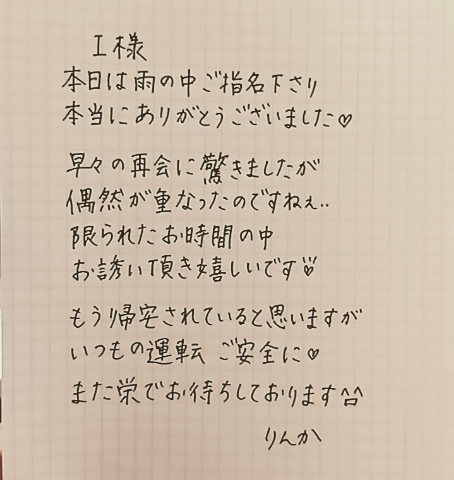 I様
本日は雨の中ご指名下さり
本当にありがとうございました♡
早々の再会に驚きましたが
偶然が重なったのですねぇ..
限られたお時間の中
お誘い頂き嬉しいです♡
もうり帰宅されていると思いますが
いつもの運転 ご安全に♡
また栄でお待ちしております^^
りんか